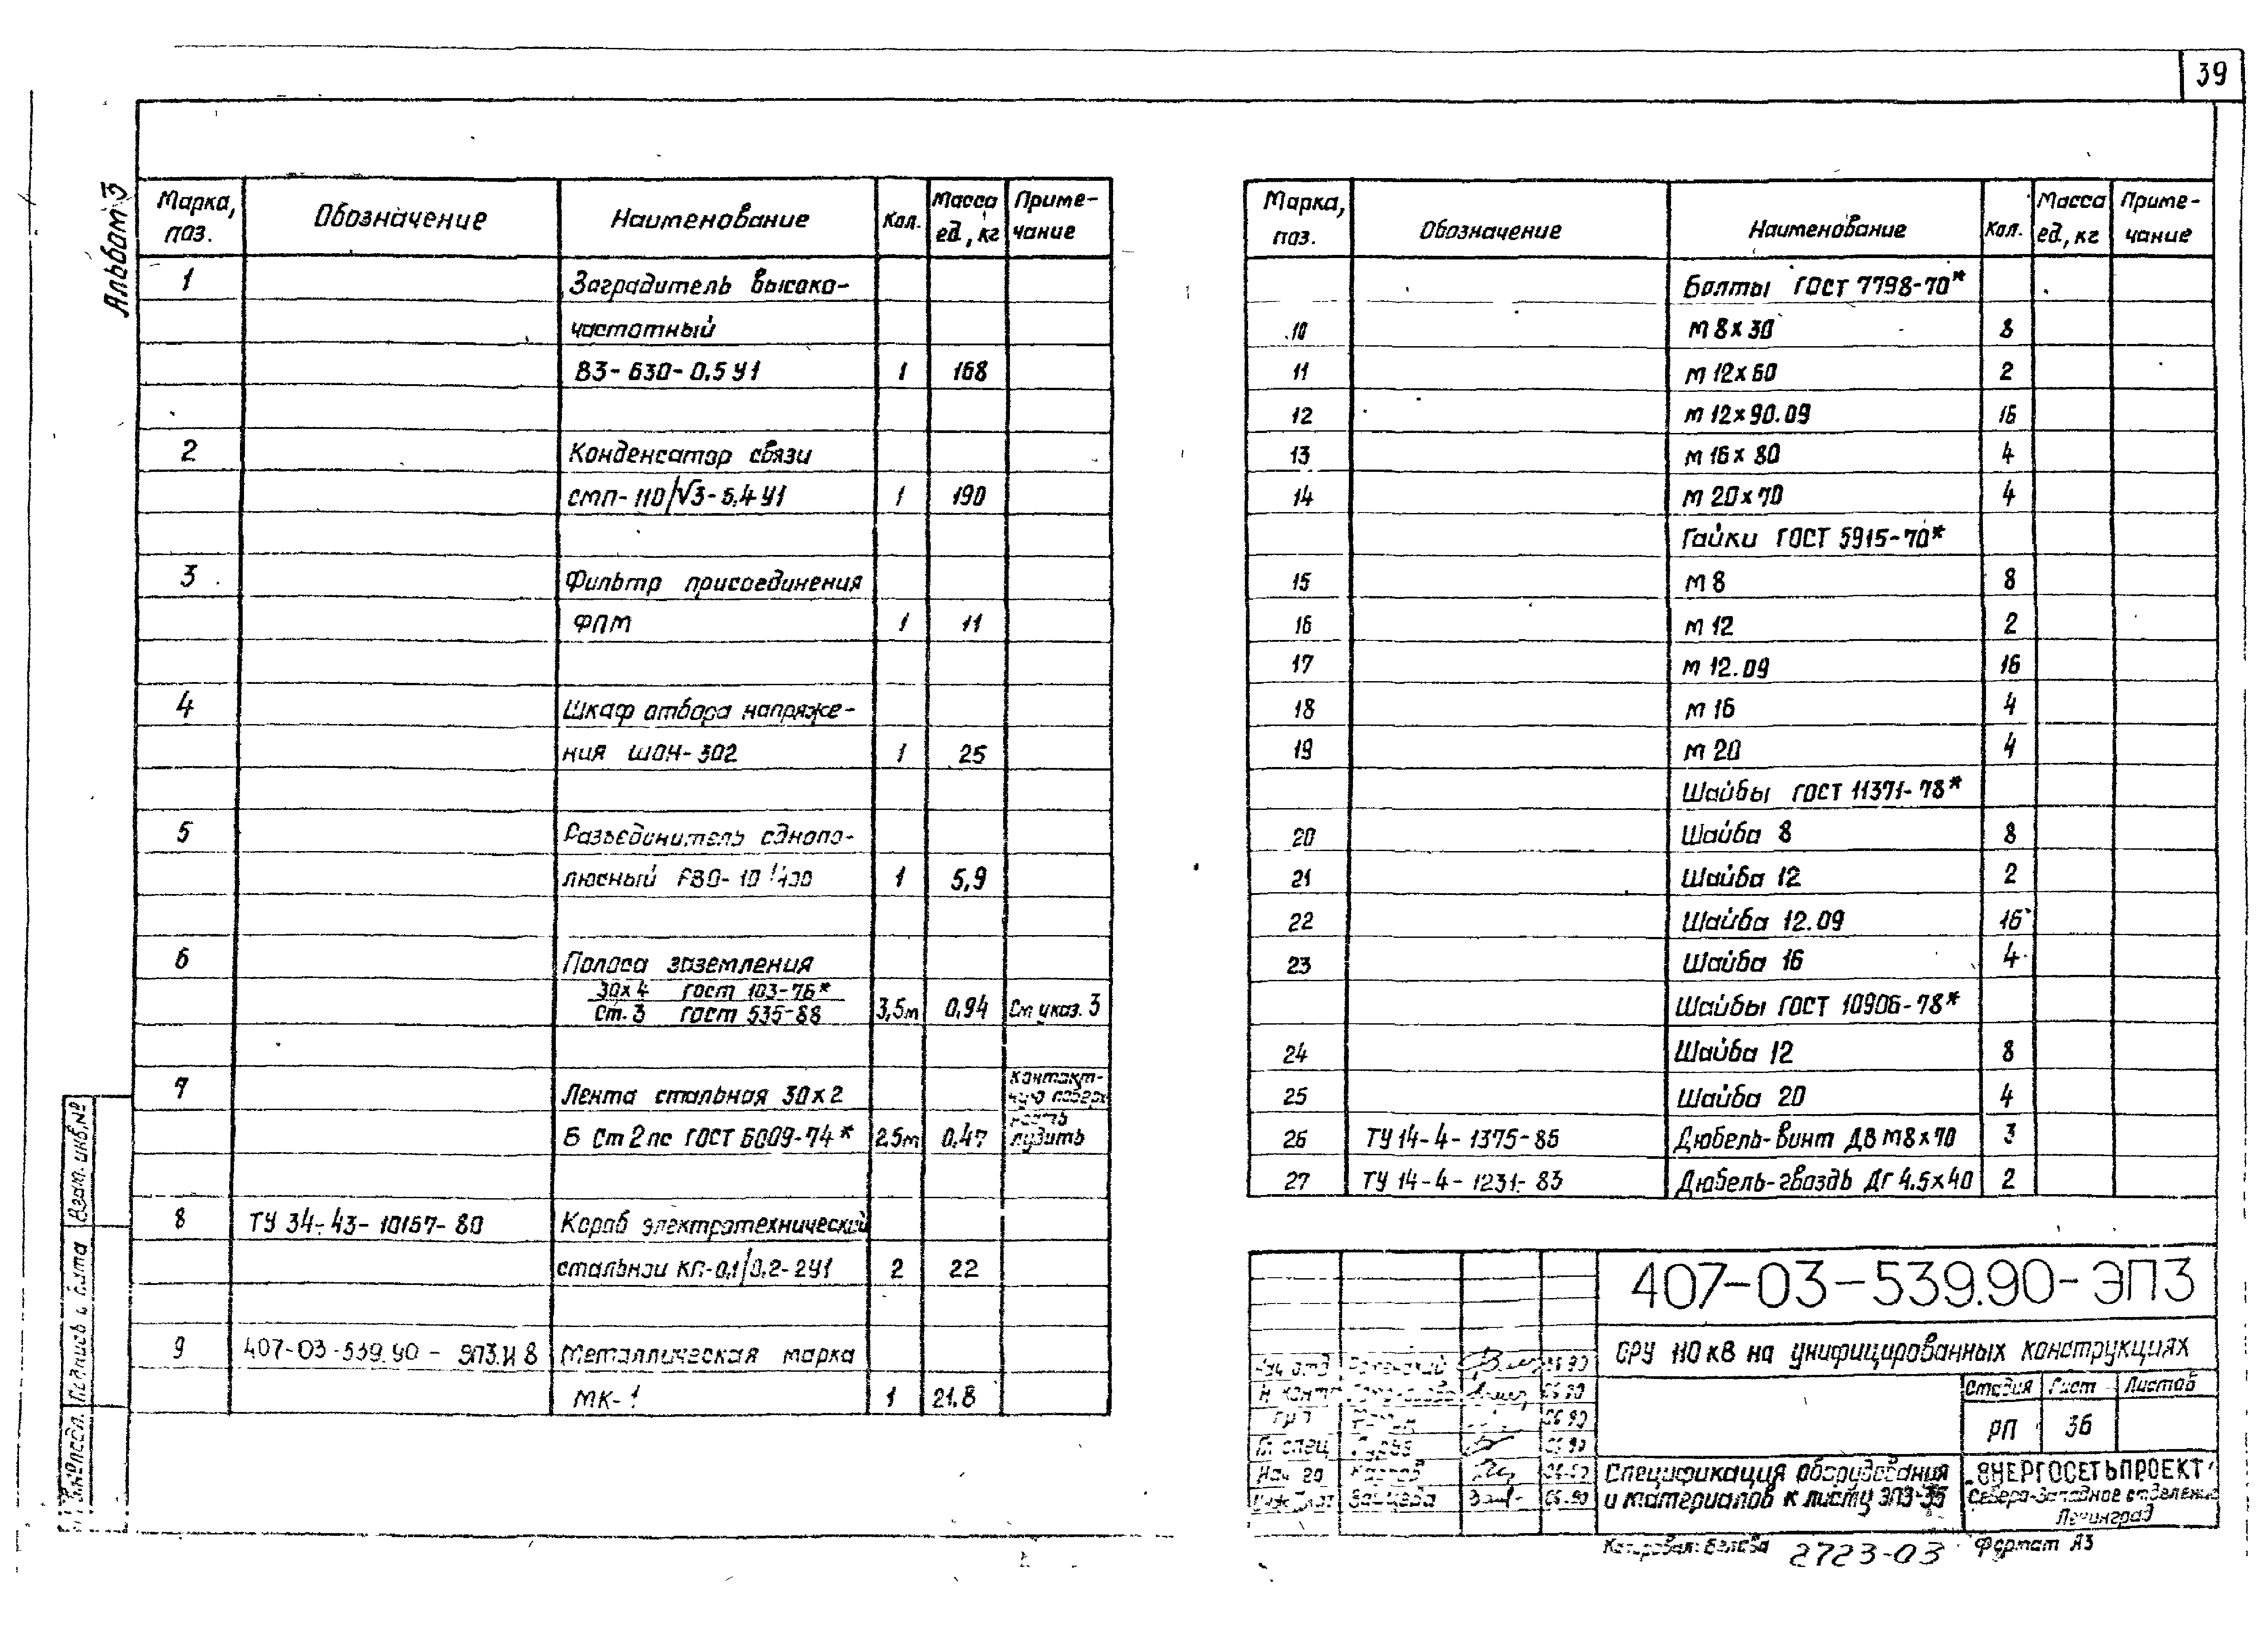 39
Альбом 3
Марка, поз. Обозначение Наименование Кол. Масса ед., кг Примечание
1 Заградитель высоко-
частотный
ВЗ-630-0.5У1 1 168
2 Конденсатор связи
СМП-110/√3-6,4У1 1 190
3 Фильтр присоединения
ФПМ 1 11
4 Шкаф отбора напряже-
ния ШОН-302 1 25
5 Разъединитель однопо-
люсный РВО-10/400 1 5,9
6 Полоса заземления
30х4 ГОСТ 103-76*
Ст.3 ГОСТ 535-88 3,5м 0,94 См указ. 3
7 Лента стальная 30х2 Контакт-
ную поверх
ность
Б Ст2пс ГОСТ 6009-74* 2.5м 0,47 лудить
8 ТУ 34-43-10167-80 Короб электротехнический
стальной КП-0,1/0,2-2У1 2 22
9 407-03-539.90-ЭП3.И8 Металлическая марка
МК-1 1 21.8
Марка, поз. Обозначение Наименование Кол. Масса ед., кг Примечание
Болты ГОСТ 7798-70*
10 М8х30 8
11 М12х60 2
12 М12х90.09 16
13 М16х80 4
14 М20х70 4
Гайки ГОСТ 5915-70*
15 М8 8
16 М12 2
17 М12.09 16
18 М16 4
19 М20 4
Шайбы ГОСТ 11371-78*
20 Шайба 8 8
21 Шайба 12 2
22 Шайба 12.09 16
23 Шайба 16 4
Шайбы ГОСТ 10906-78*
24 Шайба 12 8
25 Шайба 20 4
26 ТУ 14-4-1375-86 Дюбель-винт ДВ М8х70 3
27 ТУ 14-4-1231-83 Дюбель-гвоздь ДГ 4.5х40 2
407-03-539.90-ЭП3
ОРУ 110 кВ на унифицированных конструкциях
Стадия Лист Листов
РП 36
Нач отд 06 90
Н. контр 06 90
ГИП 06 90
Гл спец 06 90
Нач гр 06-90
Зайцева 06.90
Спецификация оборудования
и материалов к листу ЭП3-35
„ЭНЕРГОСЕТЬПРОЕКТ"
Северо-Западное отделение
Ленинград
Копировал: Белова 2723-03 Формат А3
Взам. инв. №
Подпись и дата
Инв. № подл.